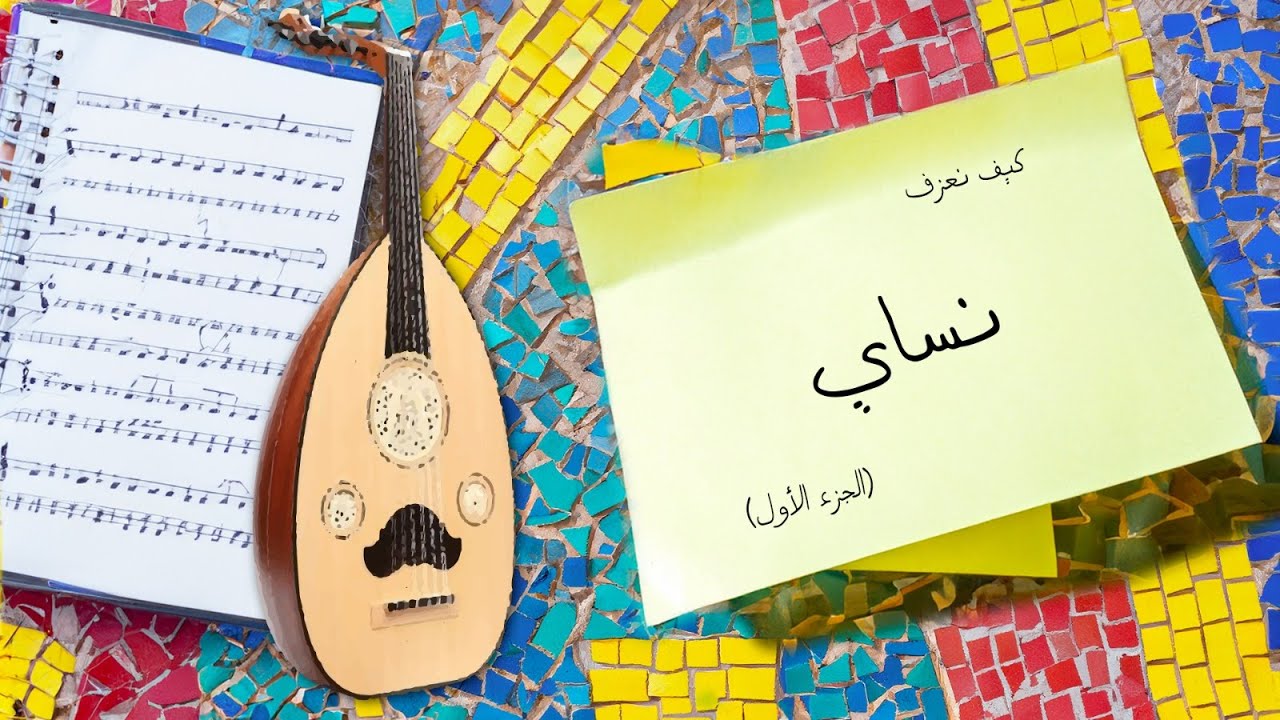 كيف نعزف
نساي
(الجزء الأول)